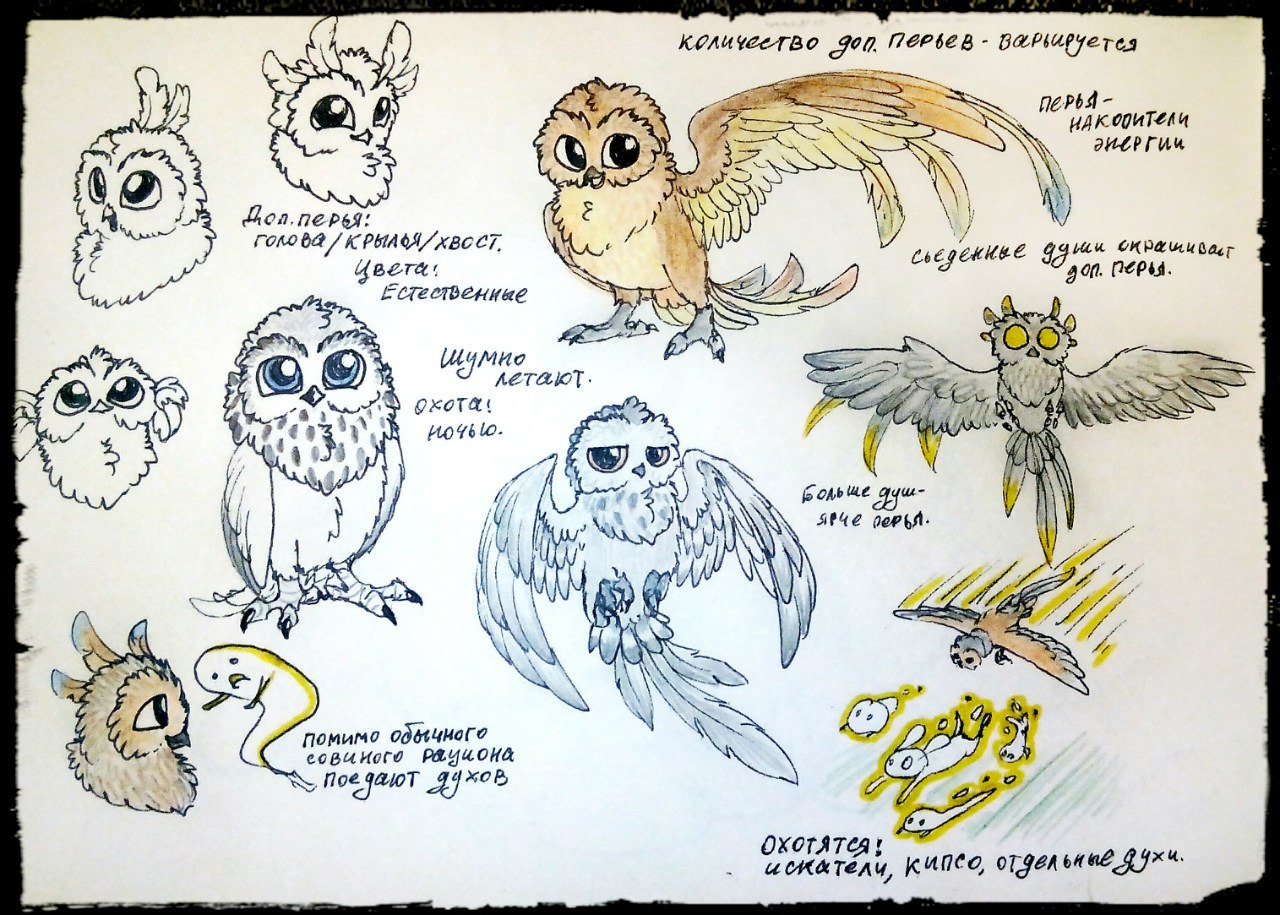 количество доп. перьев - варьируется
перья-
накопители
энергии
Доп. перья:
голова/крылья/хвост.
Цвета:
Естественные
сьеденные души окрашивают
доп. перья.
Шумно
летают.
охота:
ночью.
Больше душ-
ярче перья.
помимо обычного
совиного рациона
поедают духов
Охотятся:
искатели, кипсо, отдельные духи.